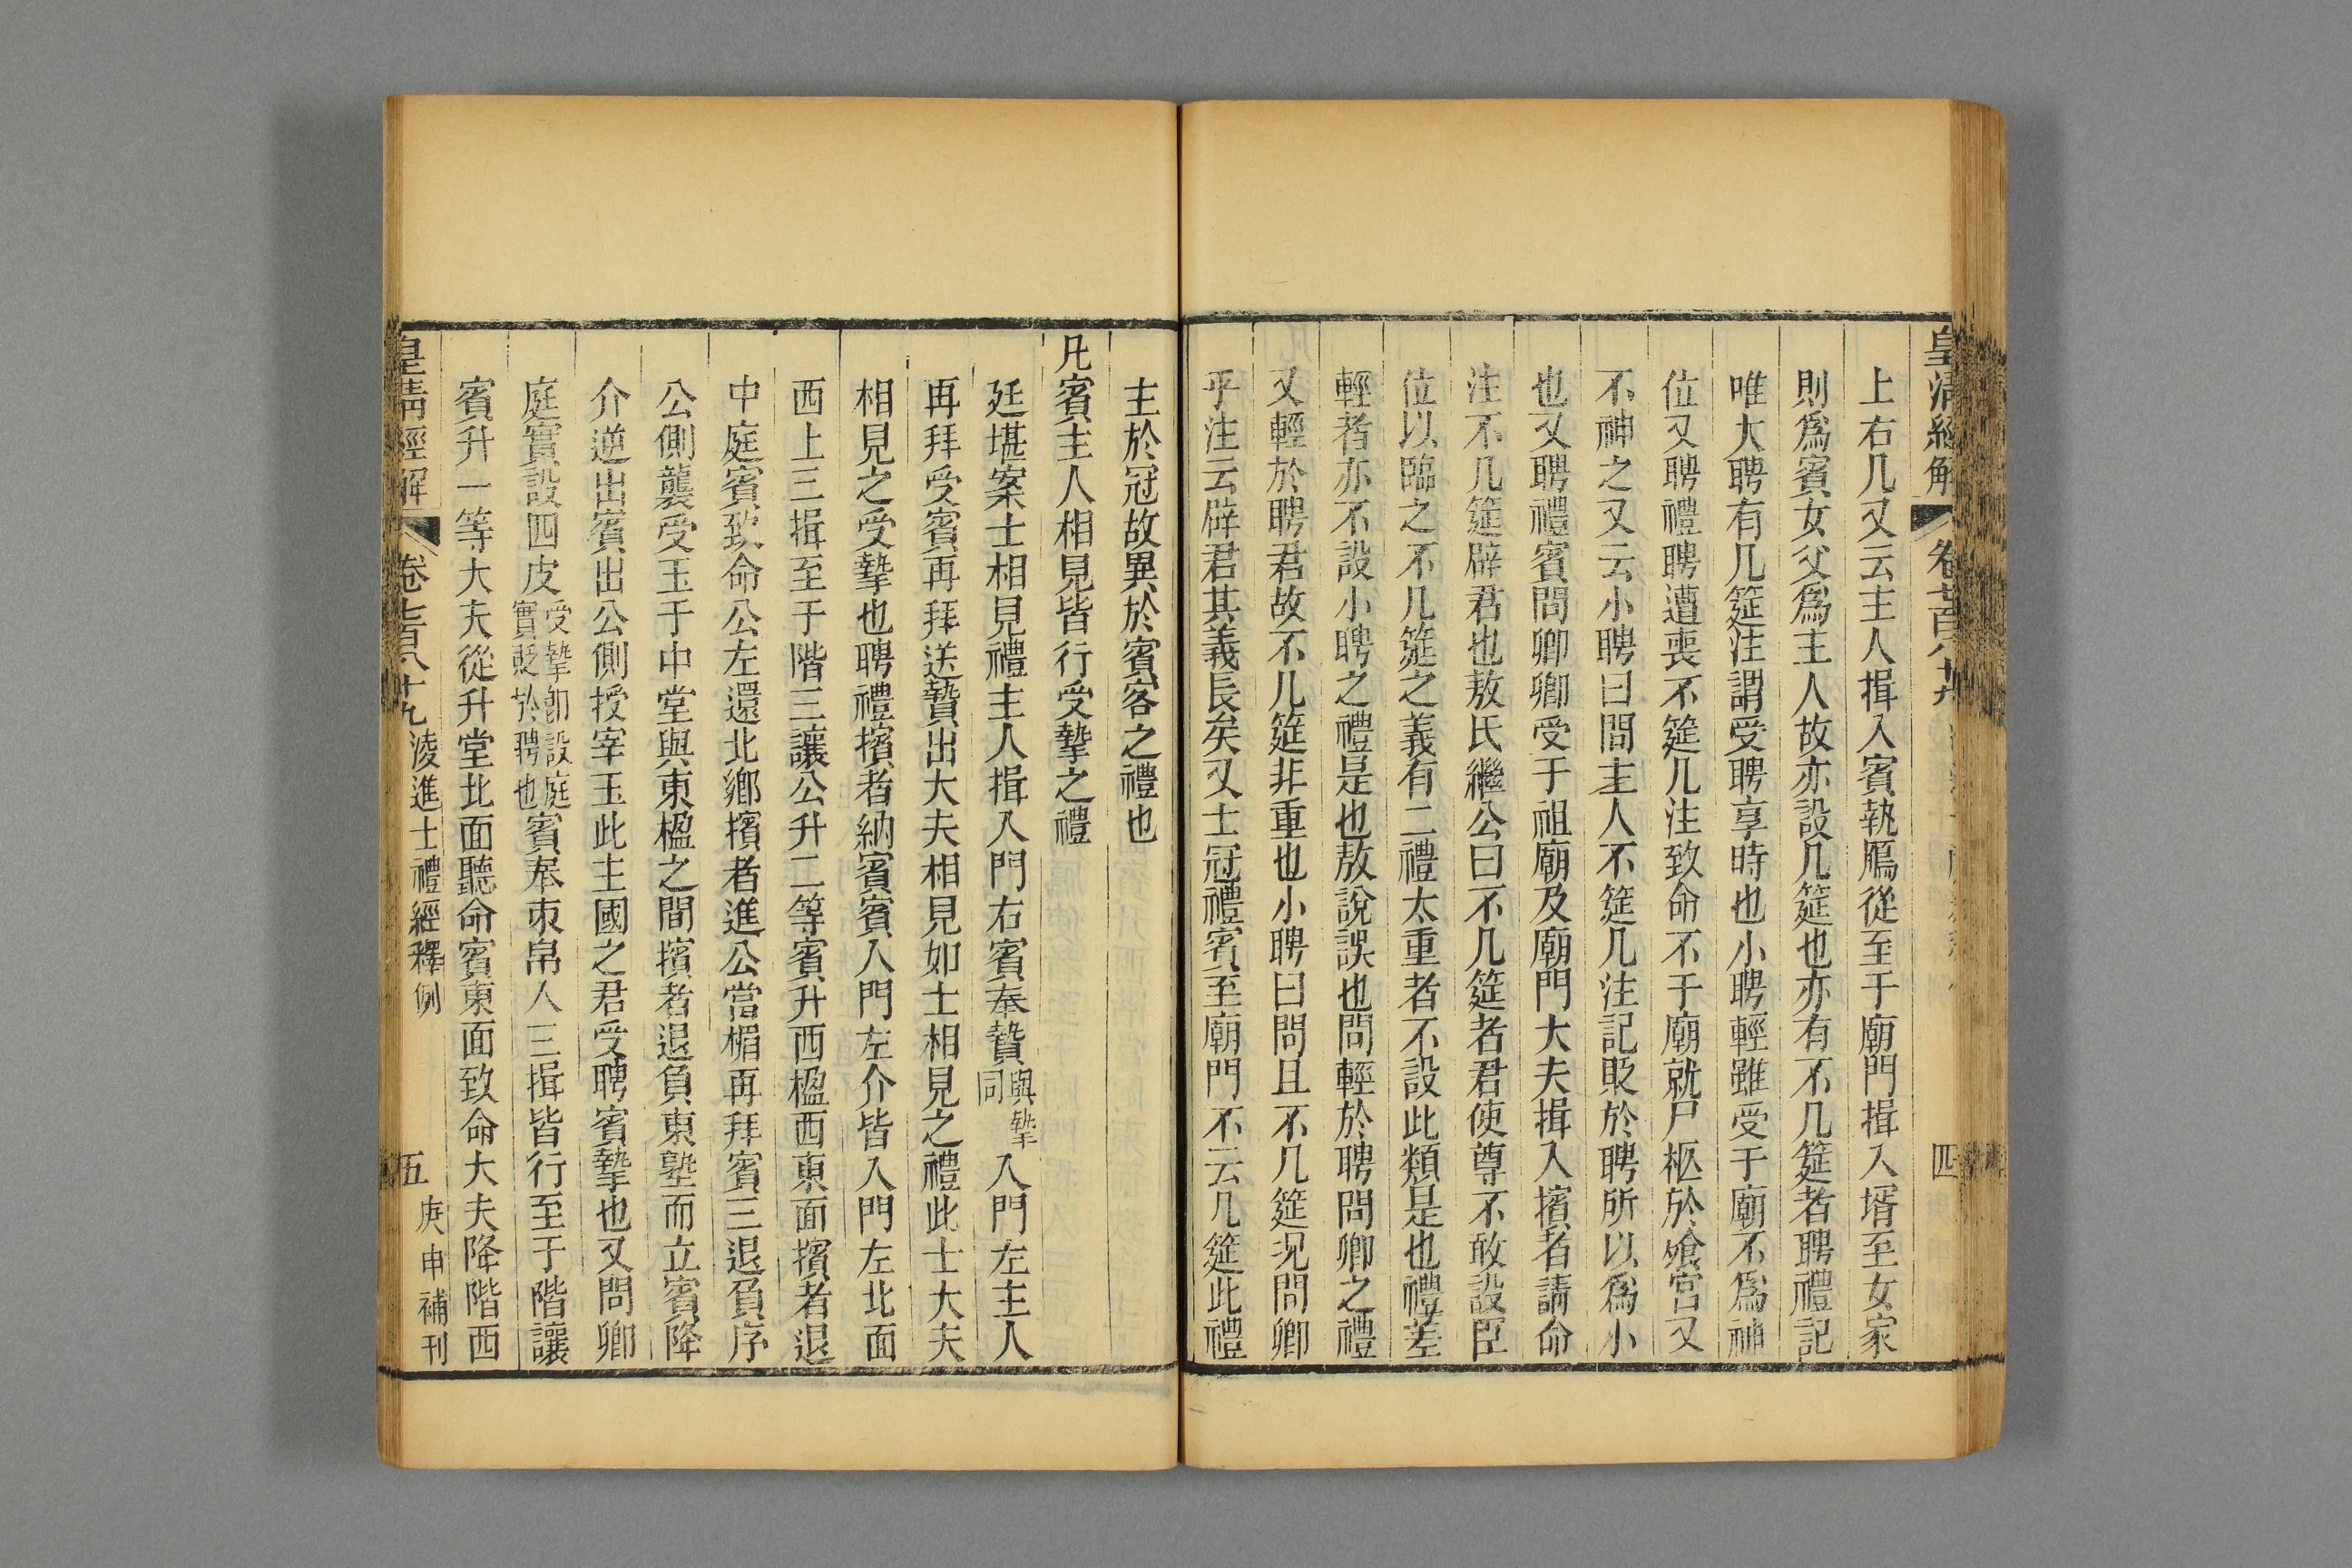 皇清經解 卷七百八十九 四
上右几又云主人揖入賓執鴈從至于廟門揖入壻至女家
則爲賓女父爲主人故亦設几筵也亦有不几筵者聘禮記
唯大聘有几筵注謂受聘享時也小聘輕雖受于廟不爲神
位又聘禮聘遭喪不筵几注致命不于廟就尸柩於殯宮又
不神之又云小聘曰問主人不筵几注記貶於聘所以爲小
也又聘禮賓問卿卿受于祖廟及廟門大夫揖入擯者請命
注不几筵辟君也敖氏繼公曰不几筵者君使尊不敢設臣
位以臨之不几筵之義有二禮太重者不設此類是也禮差
輕者亦不設小聘之禮是也敖說誤也問輕於聘問卿之禮
又輕於聘君故不几筵非重也小聘曰問且不几筵况問卿
乎注云辟君其義長矣又士冠禮賓至廟門不云几筵此禮
主於冠故異於賓客之禮也
凡賓主人相見皆行受摯之禮
廷堪案士相見禮主人揖入門右賓奉贄與摯同入門左主人
再拜受賓再拜送贄出大夫相見如士相見之禮此士大夫
相見之受摯也聘禮擯者納賓賓入門左介皆入門左北面
西上三揖至于階三讓公升二等賓升西楹西東面擯者退
中庭賓致命公左還北鄉擯者進公當楣再拜賓三退負序
公側襲受玉于中堂與東楹之間擯者退負東塾而立賓降
介逆出賓出公側授宰玉此主國之君受聘賓摯也又問卿
庭實設四皮受摯卽設庭實貶於聘也賓奉束帛入三揖皆行至于階讓
賓升一等大夫從升堂北面聽命賓東面致命大夫降階西
皇清經解 卷七百八十九 淩進士禮經釋例 五 庚申補刊